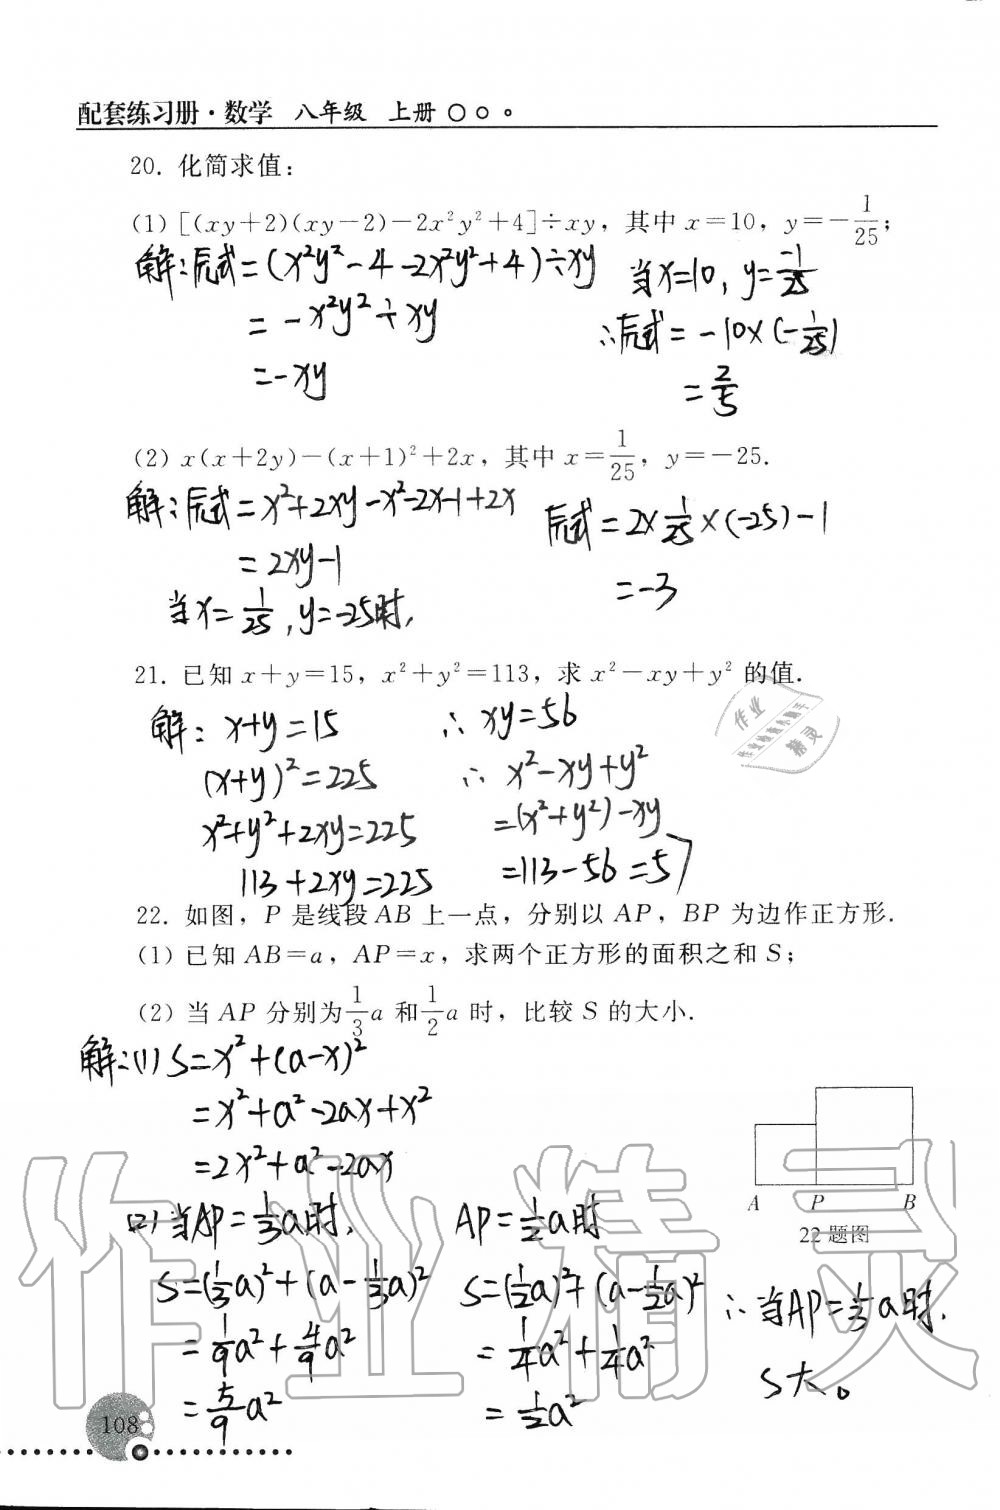 配套练习册·数学 八年级 上册
20. 化简求值:
(1) [(xy+2)(xy-2)-2x²y²+4]÷xy, 其中 x=10, y=-1/25;
解:原式=(x²y²-4-2x²y²+4)÷xy
=-x²y²÷xy
=-xy
当x=10, y=-1/25
∴原式=-10×(-1/25)
=2/5
(2) x(x+2y)-(x+1)²+2x, 其中 x=1/25, y=-25.
解:原式=x²+2xy-x²-2x-1+2x
=2xy-1
当x=1/25, y=-25时,
原式=2×1/25×(-25)-1
=-3
21. 已知 x+y=15, x²+y²=113, 求 x²-xy+y² 的值.
解: x+y=15
(x+y)²=225
x²+y²+2xy=225
113+2xy=225
∴ xy=56
∴ x²-xy+y²
=(x²+y²)-xy
=113-56=57
22. 如图, P 是线段 AB 上一点, 分别以 AP, BP 为边作正方形.
(1) 已知 AB=a, AP=x, 求两个正方形的面积之和 S;
(2) 当 AP 分别为 1/3 a 和 1/2 a 时, 比较 S 的大小.
解:(1) S=x²+(a-x)²
=x²+a²-2ax+x²
=2x²+a²-2ax
(2) 当AP=1/3a时,
S=(1/3a)²+(a-1/3a)²
=1/9a²+4/9a²
=5/9a²
AP=1/2a时
S=(1/2a)²+(a-1/2a)²
=1/4a²+1/4a²
=1/2a²
∴当AP=1/3a时,
S大。
A P B
22 题图
108
作业精灵
作业
精灵